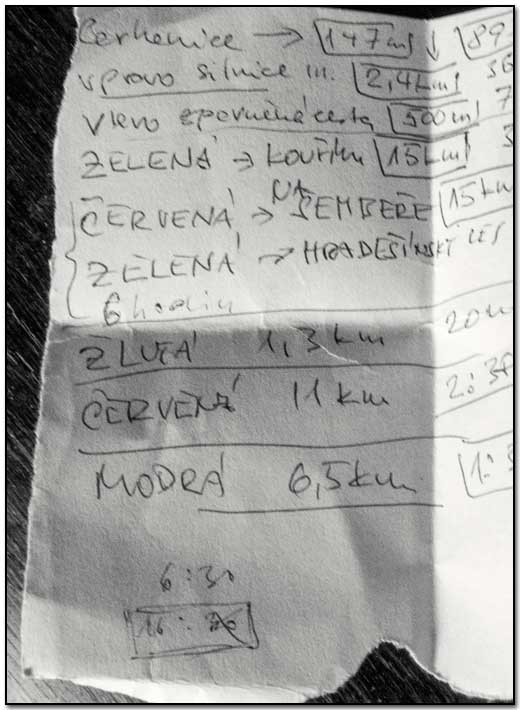 Cerhenice → 147m ↓ 89
vpravo silnice III. 2,4km
Vlevo zpevněná cesta 500m 7
ZELENÁ → KOUŘIM 15km
ČERVENÁ → NA ŠEMBEŘE 15km
ZELENÁ → HRADEŠÍNSKÝ LES
6 hodin
ŽLUTÁ 1,3 km 20m
ČERVENÁ 11 km
MODRÁ 6,5km
6:30
16: